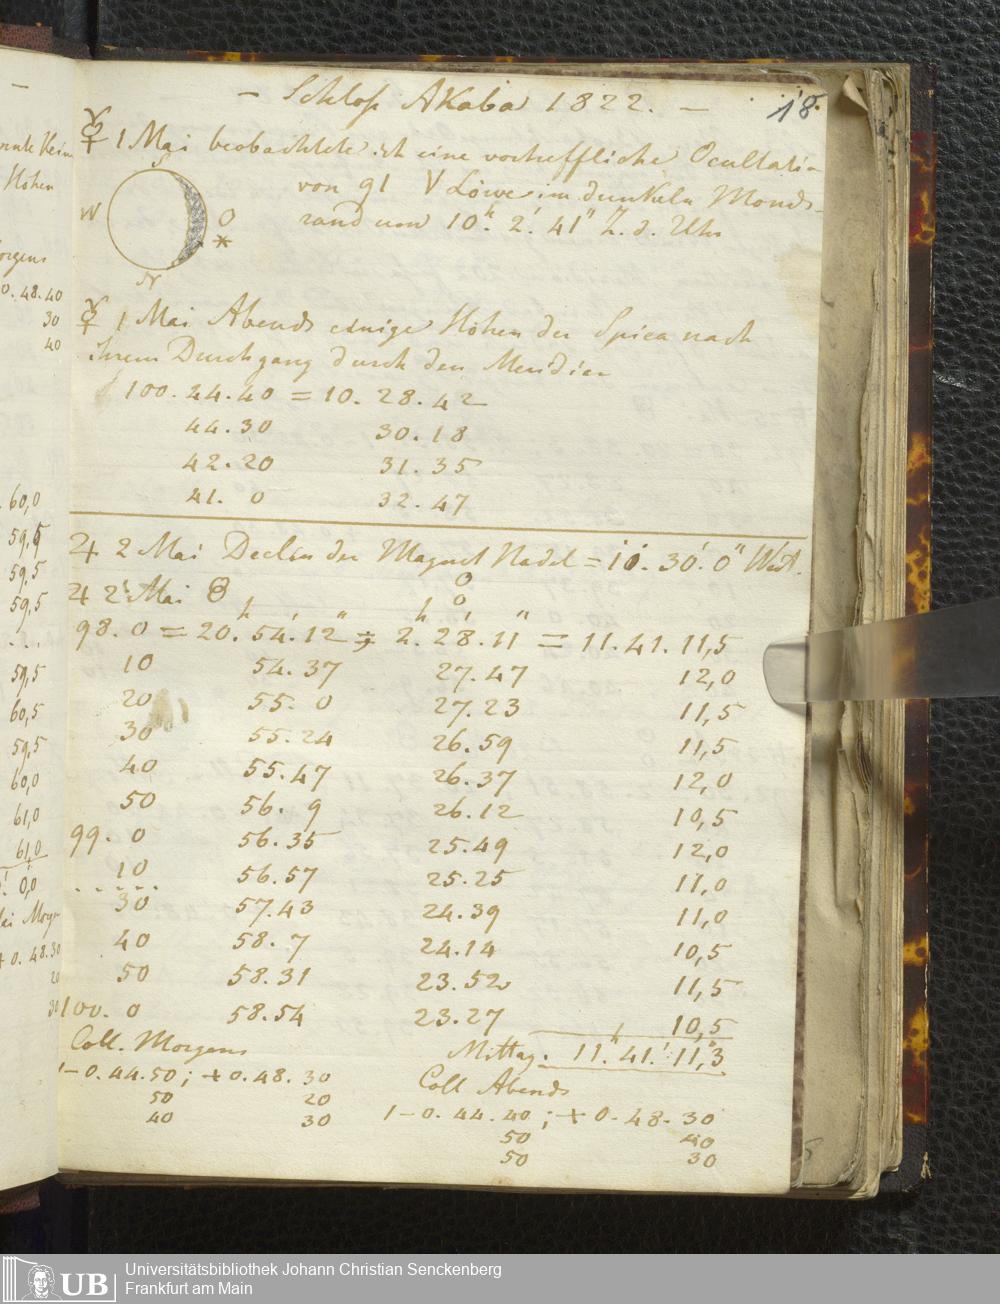 – Schloß Akaba 1822. –
18.
☿ 1 Mai beobachtete ich eine vortreffliche Ocultatio
von 91 V Löwe im dunkeln Monds
rand um 10h. 2.' 41" d. Uhr
S
W
O
*
N
☿ 1 Mai Abends einige Höhen der Spica nach
ihrem Durchgang durch den Meridian
100. 44. 40 = 10. 28. 42
44. 30 30. 18
42. 20 31. 35
41. 0 32. 47
♃ 2 Mai Declin der Magnet Nadel = 10°. 30.' 0" West.
♃ 2 Mai
98. 0 = 20h. 54.' 12" ; 2.h 28.' 11" = 11. 41. 11,5
10 54. 37 27. 47 12,0
20 55. 0 27. 23 11,5
30 55. 24 26. 59 11,5
40 55. 47 26. 37 12,0
50 56. 9 26. 12 10,5
99. 0 56. 35 25. 49 12,0
10 56. 57 25. 25 11,0
. . . . .
30 57. 43 24. 39 11,0
40 58. 7 24. 14 10,5
50 58. 31 23. 52 11,5
100. 0 58. 54 23. 27 10,5
Mittag. 11h. 41.' 11,"3
Coll. Morgens
– 0. 44. 50 ; + 0. 48. 30
50 20
40 30
Coll Abends
– 0. 44. 40 ; + 0. 48. 30
50 40
50 30
Höhen
0. 48. 40
30
40
60,0
59,5
59,5
59,5
. . .
59,5
60,5
59,5
60,0
61,0
61,0
0,0
+ 0. 48. 30
20
30
UB
Universitätsbibliothek Johann Christian Senckenberg
Frankfurt am Main